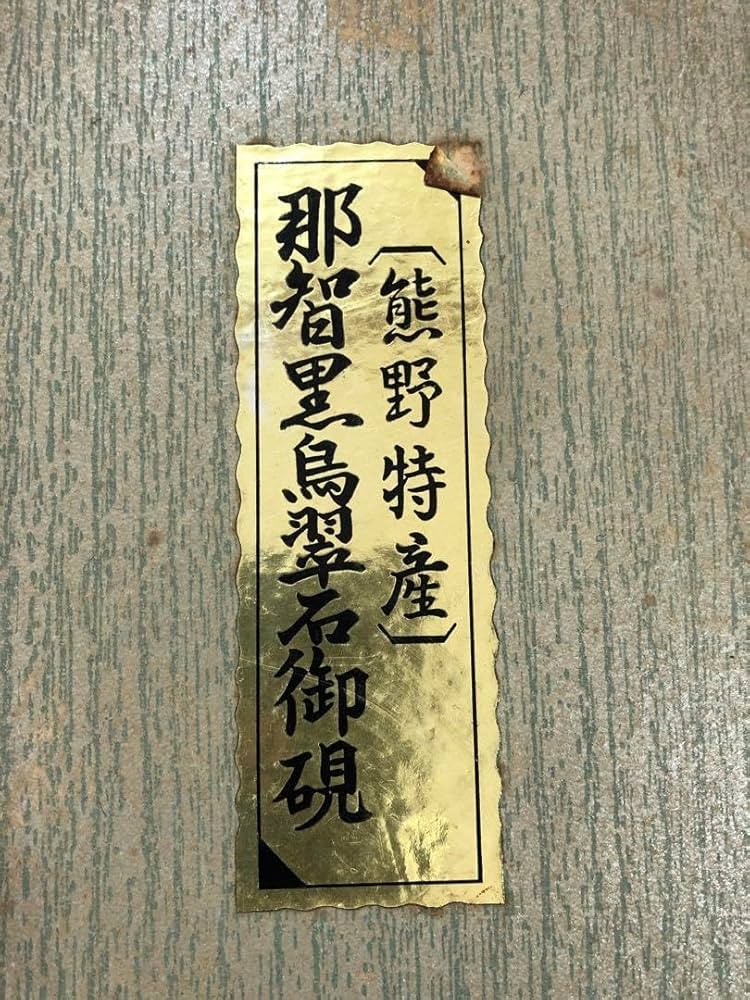 〔熊野特産〕
那智黒烏翠石御硯